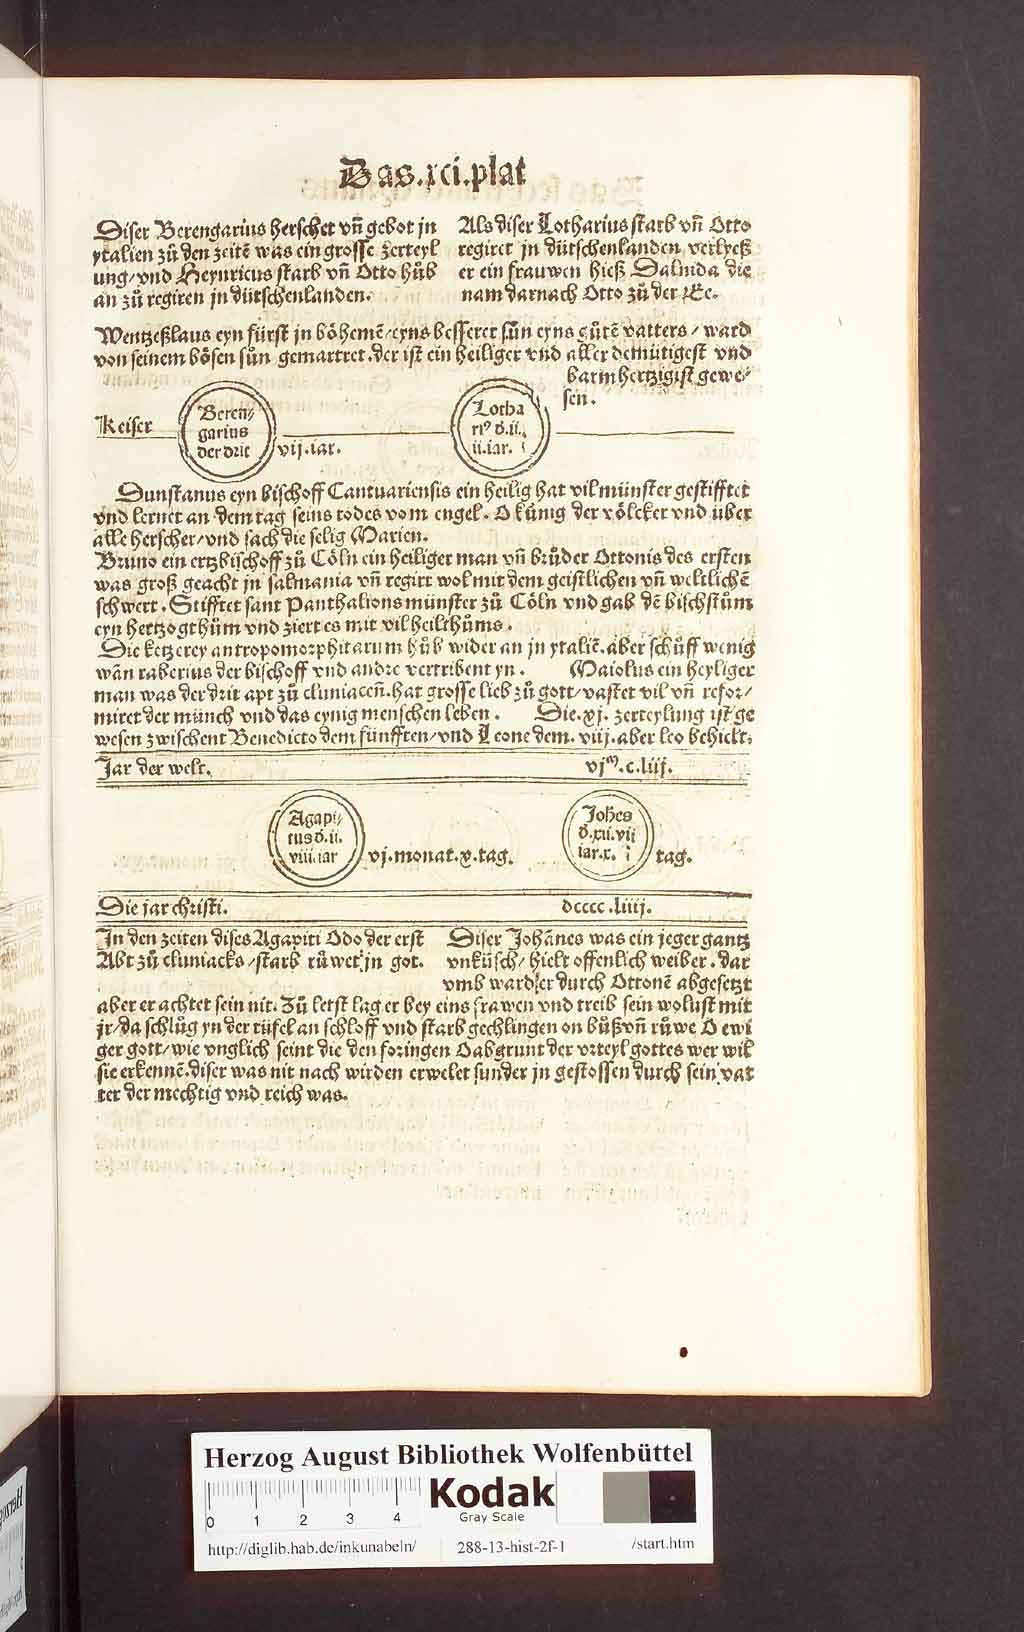 Das.xci.plat
Diser Berengarius herschet vn̄ gebot jn
ytalien zů den zeitē was ein grosse zerteyl
ung/vnd Heynricus starb vn̄ Otto hůb
an zů regiren jn dütschenlanden.
Als diser Lotharius starb vn̄ Otto
regiret jn dütschenlanden verlyeß
er ein frauwen hieß Dalmda die
nam darnach Otto zů der Ee.
Wentzeßlaus eyn fürst jn bőhemē/eyns besserer sůn eyns gůtē vatters/ward
von seinem bősen sůn gemartret.der ist ein heiliger vnd aller demütigest vnd
barmhertzigist gewe/
sen.
Keiser
Beren/
garius
der drit
vij.iar.
Lotha
riꝰ d.ii.
ii.iar.
Dunstanus eyn bischoff Cantuariensis ein heilig hat vil münster gestifftet
vnd lernet an dem tag seins todes vom engel. O künig der vőlcker vnd über
alle herscher/vnd sach die selig Marien.
Bruno ein ertzbischoff zů Cőln ein heiliger man vn̄ brůder Ottonis des ersten
was groß geacht jn salmania vn̄ regirt wol mit dem geistlichen vn̄ weltlichē
schwert. Stifftet sant Panthalions münster zů Cőln vnd gab dē bischstům
eyn hertzogthům vnd ziert es mit vil heilthůms.
Die ketzerey antropomorphitarum hůb wider an jn ytaliē.aber schůff wenig
wān raberius der bischoff vnd andre vertribent yn. Maiolus ein heyliger
man was der drit apt zů cluniacen̄.hat grosse lieb zů gott/vastet vil vn̄ refor/
miret der münch vnd das eynig menschen leben. Die.xj. zerteylung ist ge
wesen zwischent Benedicto dem fünfften/vnd Leone dem.viij.aber leo behielt.
Jar der welt.
vjᵐ.c.liij.
Agapi/
tus d.ii.
viii.iar
vj.monat.x.tag.
Johēs
d.xii.vii
iar.x.
tag.
Die jar christi.
dcccc.liiij.
In den zeiten dises Agapiti Odo der erst
Abt zů cluniacks/starb růwet jn got.
Diser Johānes was ein jeger gantz
vnküsch/hielt offenlich weiber.dar
vmb ward er durch Ottonē abgesetzt
aber er achtet sein nit. Zů letst lag er bey eins frawen vnd treib sein wolust mit
jr/da schlůg yn der tüfel an schloff vnd starb gechlingen on bůß vn̄ růwe O ewi
ger gott/wie vnglich seint die den foringen O abgrunt der vrteyl gottes wer wil
sie erkennē.diser was nit nach wirden erwelet sunder jn gestossen durch sein vat
ter der mechtig vnd reich was.
Herzog August Bibliothek Wolfenbüttel
0 1 2 3 4
Kodak
Gray Scale
http://diglib.hab.de/inkunabeln/
288-13-hist-2f-1
/start.htm